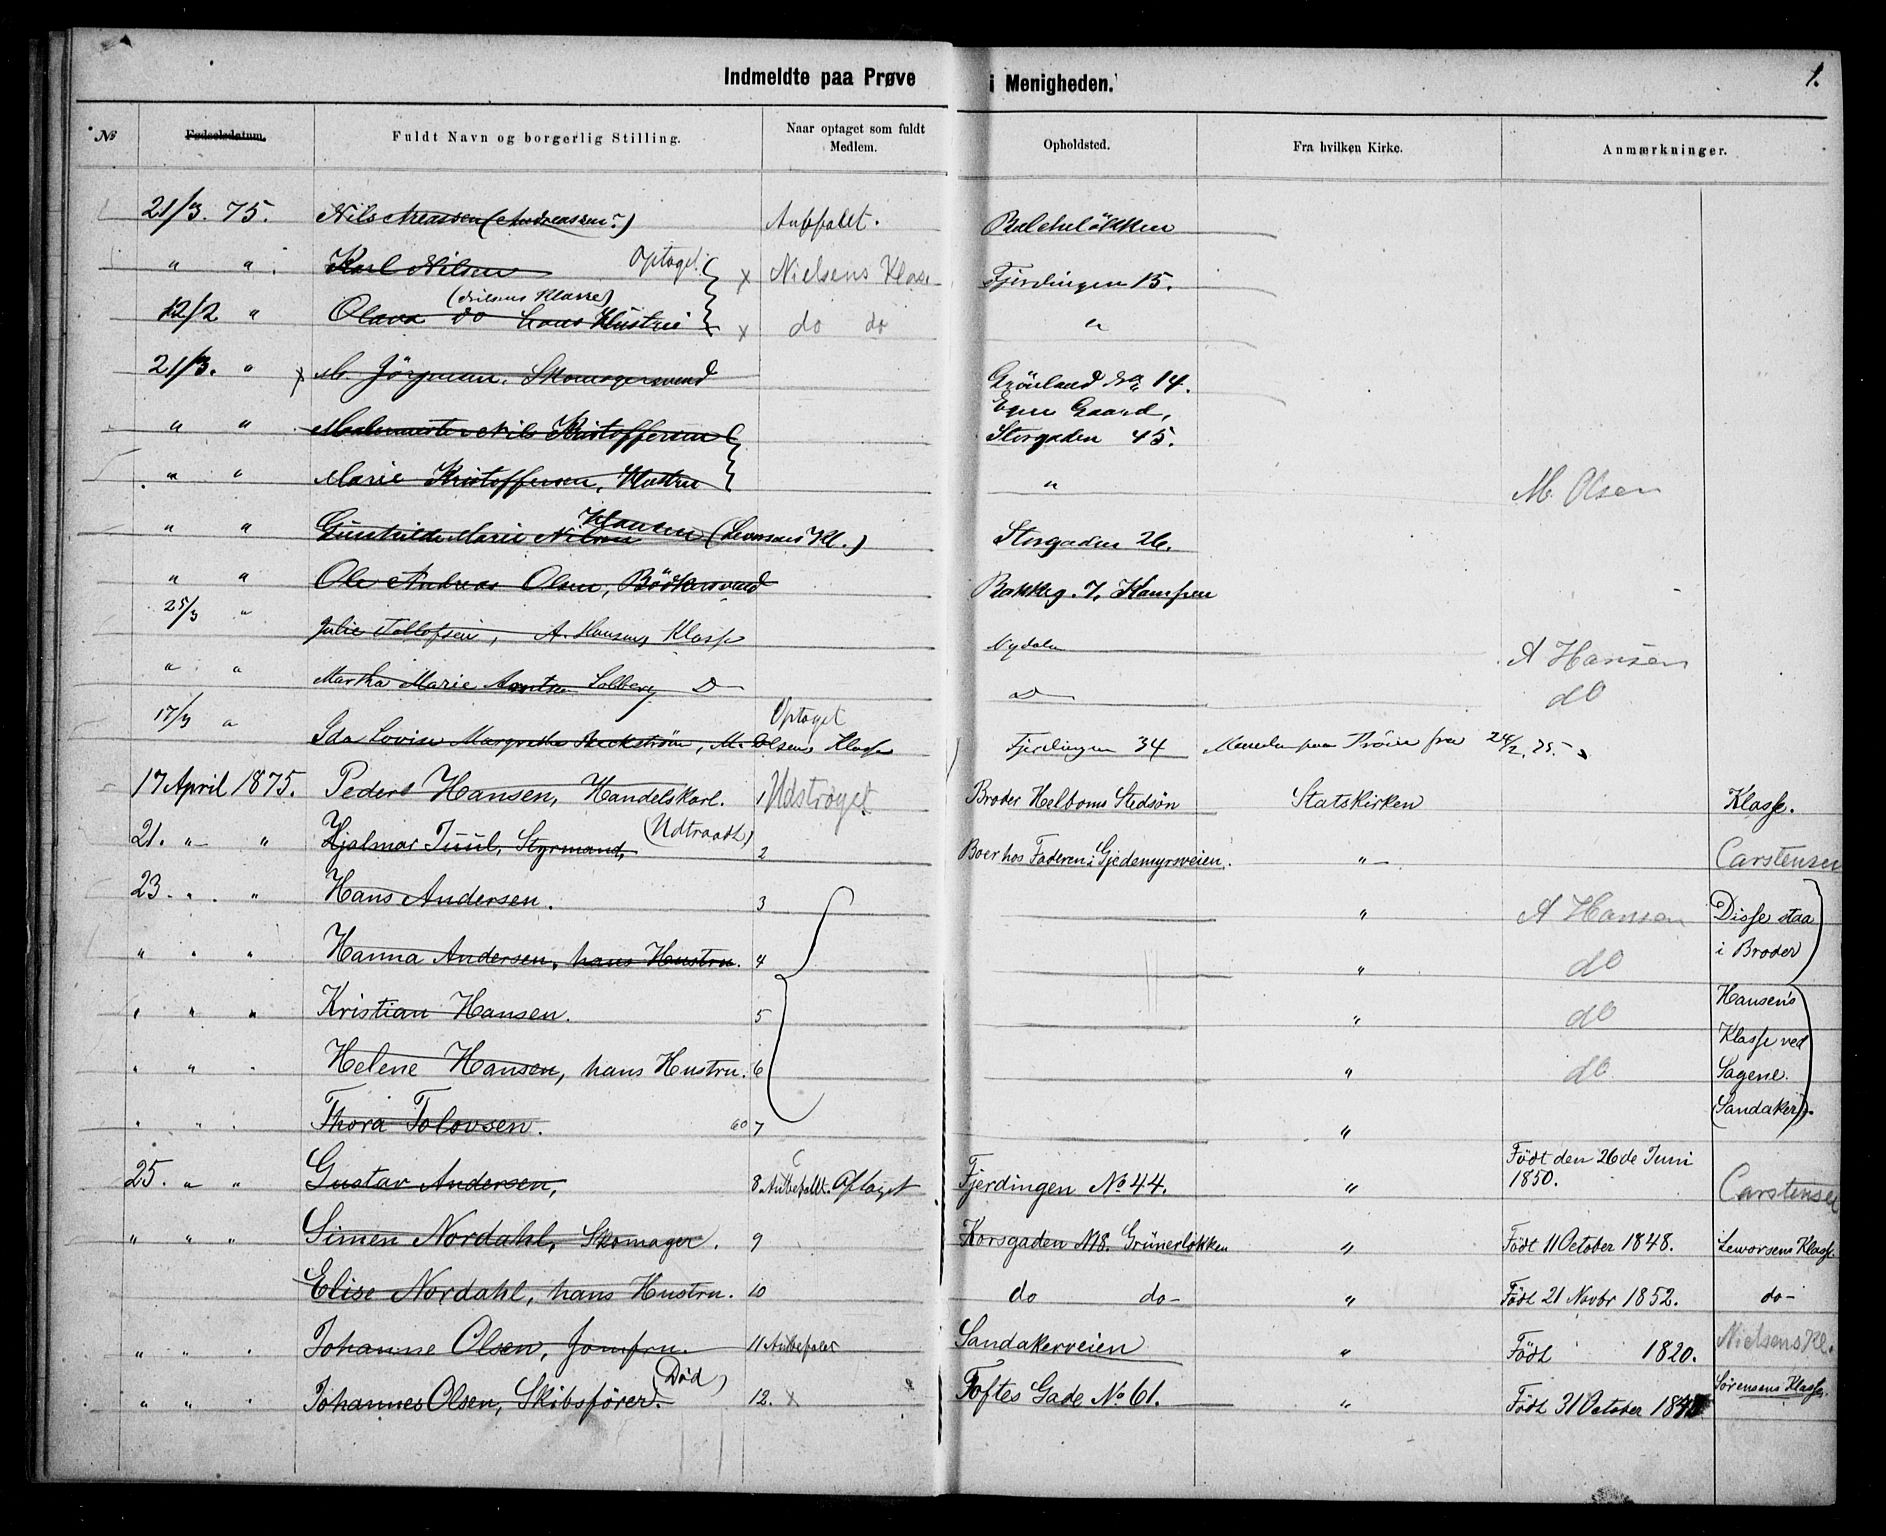 Indmeldte paa Prøve i Menigheden. 1.
No Fødselsdatum. Fuldt Navn og borgerlig Stilling. Naar optaget som fuldt Medlem. Opholdsted. Fra hvilken Kirke. Anmærkninger.
21/3. 75. Nils Arenssen (Andreassen?) Anbfalet.
" " Karl Nilsen Optaget. x Nielsens Klase Fjerdingen 15.
(Nilsens Klasse)
12/2 " Olava do hans Hustru x do do "
21/3. " M. Jörgensen, Skomagersvend Grönland No 14.
Egne Gaard,
" " Malermester Nils Kristoffersen Storgaden 45.
" " Marie Kristoffersen, Hustru " M. Olsen
Klausen
" " Gunhilde Marie Nilsen (Levorsens Kl.) Storgaden 26.
" " Ole Andreas Olsen, Bödkersvend Bakkeg. 7, Kampen
25/3 " Julie Tollofsen, A. Hansens Klasse Nydalen A Hansen
" " Martha Marie Solberg D D do
Optaget
17/3 " Ida Lovise Margrethe Beckström, M. Olsens Klasse Fjerdingen 34 paa Pröve fra 24/2. 75.
17 April 1875. Peder Hansen, Handelskarl. 1 Udstrøget Broder Helboms Stedsön Statskirken Klasse.
21. " " Hjalmar Juul, Styrmand, (Udtraadt) 2 Boer hos Faderen i Gjedemyrsveien. " Carstensen
23. " " Hans Andersen. 3 " A Hansen Disse staa
" " " Hanna Andersen, hans Hustru. 4 " do i Broder
" " " Kristian Hansen. 5 " do Hansen's
Klasse ved
" " " Helene Hansen, hans Hustru. 6 " do Sagene.
(Sandaker).
" " " Thora Tolovsen. 7 "
Födt den 26de Juni
25. " " Gustav Andersen, 8 Anbefalt. Optaget Fjerdingen No 44. " 1850. Carstensen
" " " Simen Nordahl, Skomager. 9 Korsgaden N 8. Grünerlokken " Födt 11 October 1848. Leworsens Klasse
Elise Nordahl, hans Hustru. 10 do do- " Födt 21 Novbr 1852. do-
" " " Johanne Olsen, Jomfru. 11 Anbefales Sandakerveien " Födt 1820. Nielsens Kl.
(Död)
" " " Johannes Olsen, Skibsförer. 12. x Toftes Gade No 61. " Födt 31 October Sörensens Klasse.